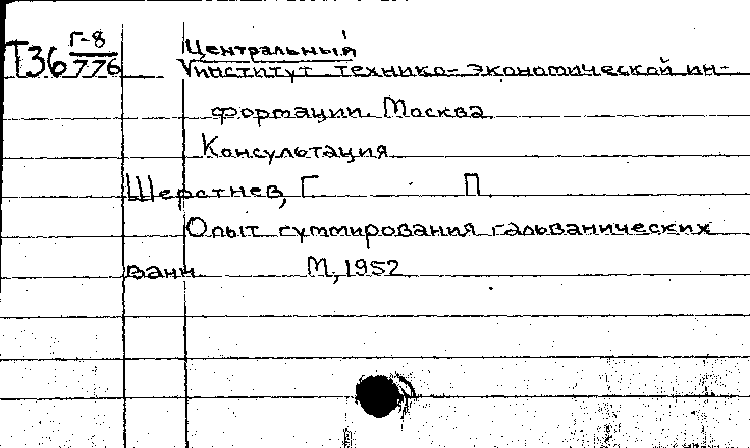 Т36 Г-8/776
Центральный
институт технико-экономической ин-
формации. Москва
Консультация
Шерстнев, Г П
Опыт гуммирования гальванических
ванн М, 1952